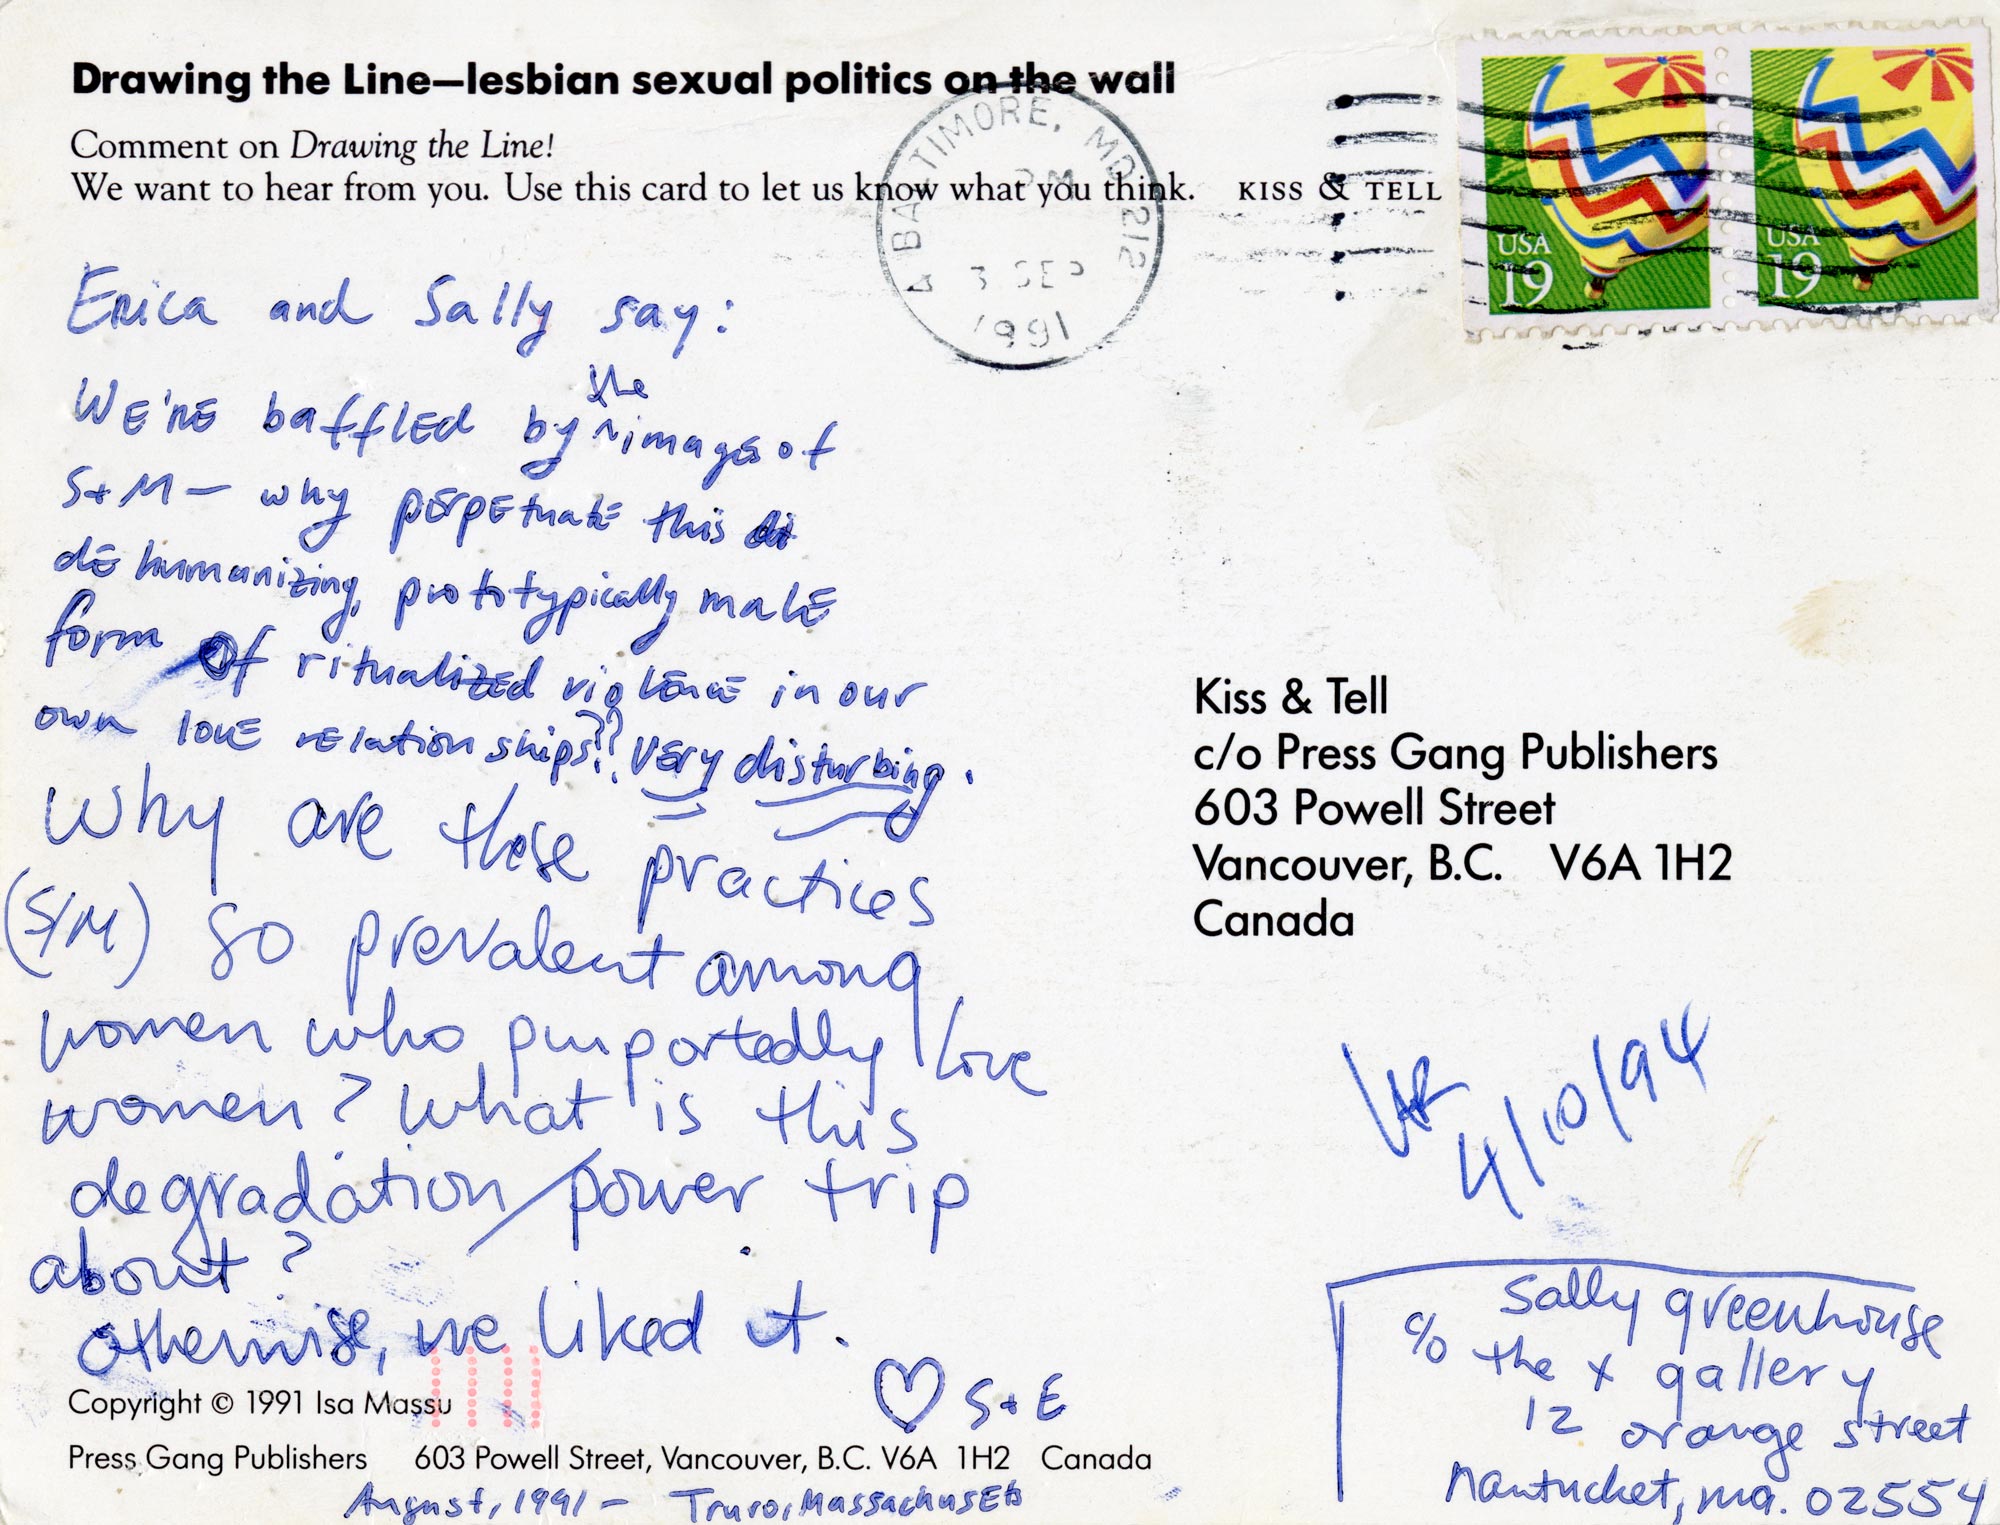 Drawing the Line—lesbian sexual politics on the wall
Comment on Drawing the Line!
We want to hear from you. Use this card to let us know what you think. KISS & TELL
BALTIMORE, MD 212
PM
3 SEP
1991
USA
19
USA
19
Erica and Sally say:
We're baffled by the images of
S+M — why perpetuate this
dehumanizing, prototypically male
form of ritualized violence in our
own love relationships?? Very disturbing.
Why are these practices
(S/M) so prevalent among
women who purportedly love
women? What is this
degradation/power trip
about?
otherwise, we liked it.
♡ S+E
Copyright © 1991 Isa Massu
Press Gang Publishers 603 Powell Street, Vancouver, B.C. V6A 1H2 Canada
August, 1991 — Truro, Massachusetts
Kiss & Tell
c/o Press Gang Publishers
603 Powell Street
Vancouver, B.C. V6A 1H2
Canada
4/10/94
Sally greenhouse
c/o the x gallery
12 orange street
nantucket, ma. 02554